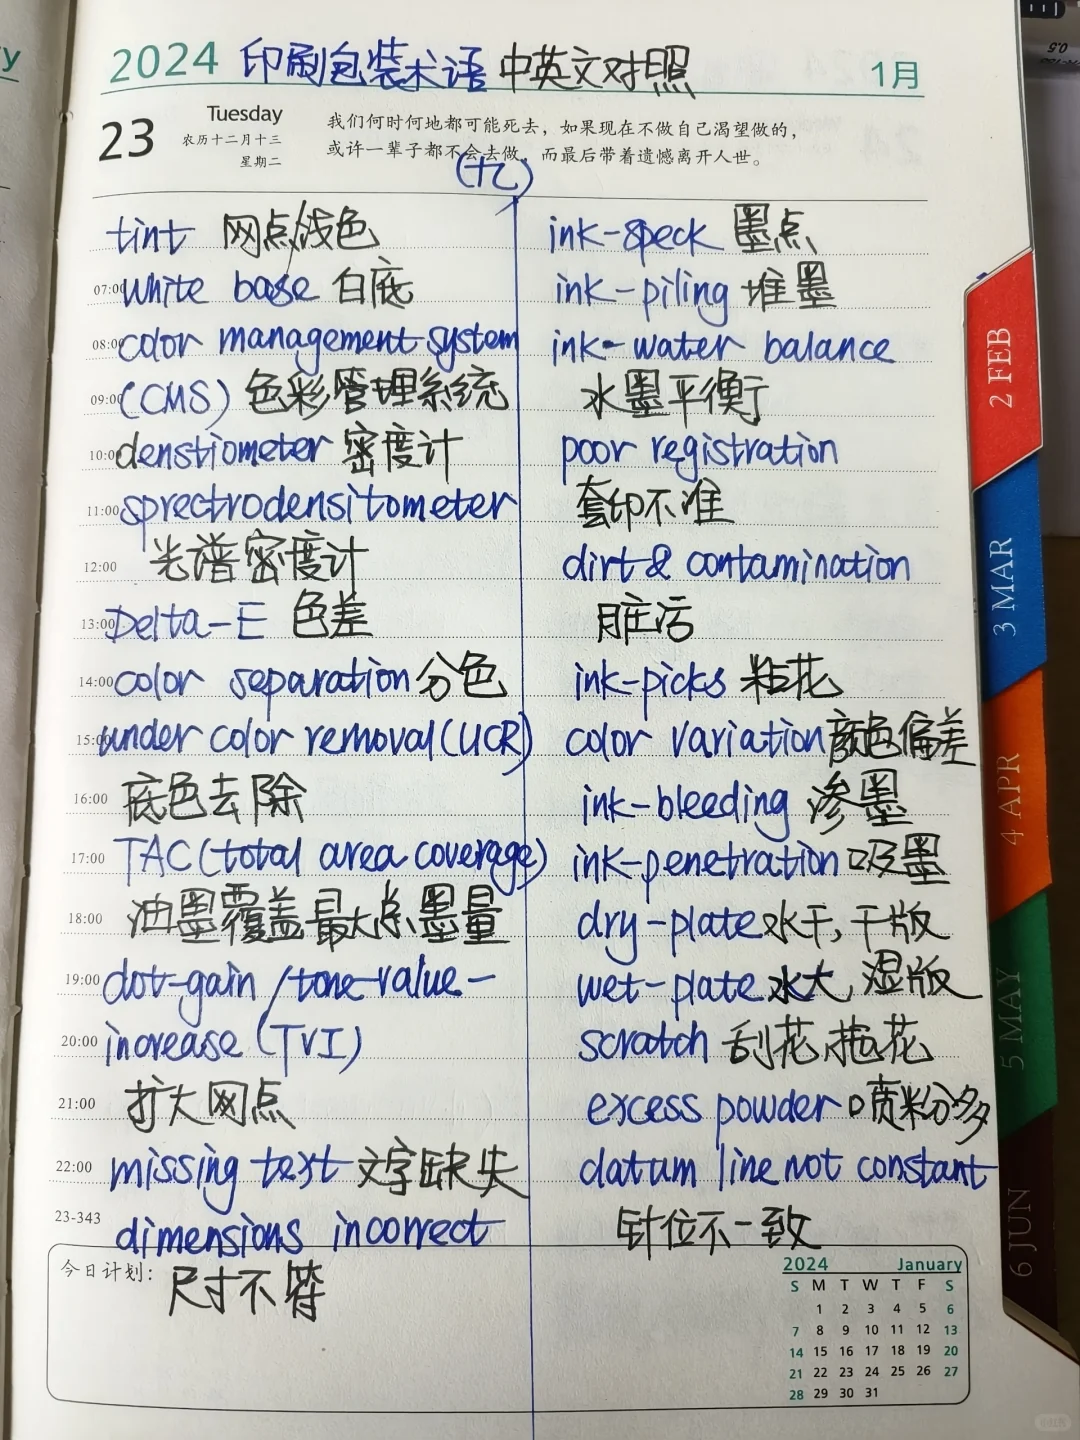 2024 印刷包装术语 中英文对照 1月
23
Tuesday
农历十二月十三
星期二
我们何时何地都可能死去，如果现在不做自己渴望做的，
或许一辈子都不会去做，而最后带着遗憾离开人世。
(十九)
tint 网点/线色
07:00 white base 白底
08:00 color management system
09:00 (CMS) 色彩管理系统
10:00 denstiometer 密度计
11:00 sprectrodensitometer
12:00 光谱密度计
13:00 Delta-E 色差
14:00 color separation 分色
15:00 under color removal (UCR)
16:00 底色去除
17:00 TAC (total area coverage)
18:00 油墨覆盖最大总墨量
19:00 dot-gain / tone-value-
20:00 increase (TVI)
21:00 扩大网点
22:00 missing text 文字缺失
23-343 dimensions incorrect
今日计划: 尺寸不符
ink-speck 墨点
ink-piling 堆墨
ink-water balance
水墨平衡
poor registration
套印不准
dirt & contamination
脏污
ink-picks 粘花
color variation 颜色偏差
ink-bleeding 渗墨
ink-penetration 吸墨
dry-plate 水干, 干版
wet-plate 水大, 湿版
scratch 刮花, 拖花
excess powder 喷粉分多
datum line not constant
针位不一致
2024 January
S M T W T F S
1 2 3 4 5 6
7 8 9 10 11 12 13
14 15 16 17 18 19 20
21 22 23 24 25 26 27
28 29 30 31
2 FEB
3 MAR
4 APR
5 MAY
6 JUN
0.5